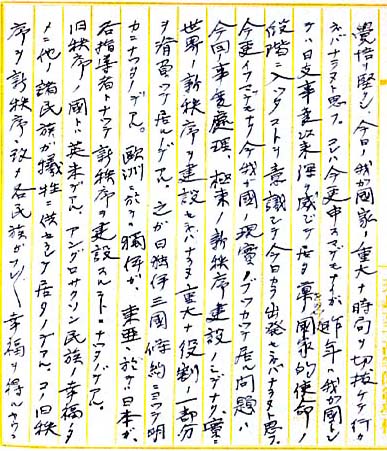 覺悟ヲ堅メ、今日ノ我ガ國家ノ重大ナ時局ヲ切拔ケテ行カ
ネバナラヌト思フ。コレハ今更申スマデモナイガ、昨年ノ我ガ國トシ
テハ日支事変以来深ク感ジテ居タ 国家的使命ノ
段階ニ入ッタコトヲ意識シテ今日カラ出発セネバナラヌト思フ。
今更イフマデモナク今我ガ國ノ現實ノブツカッテ居ル問題ハ
今回ノ事変處理、極東ノ新秩序建設ノミデナク、實ニ
世界ノ新秩序ヲ建設セネバナラヌ重大ナ役割ノ一部分
ヲ背負ッテ居ルノデアル。之ガ日独伊三國條約ニヨッテ明
カニナッタノデアル。歐洲ニ於テハ獨伊ガ、東亜ニ於テハ日本ガ、
各指導者トナッテ新秩序ヲ建設スルコトニナッタノデアル。
旧秩序ノ國トハ英米デアル。アングロサクソン民族ノ幸福ノタ
メニ他ノ諸民族ガ犠牲ニ供セラレテ居タノデアル。コノ旧秩
序ヲ新秩序ニ改メ各民族ガソレゾレ幸福ヲ得ルヤウニ